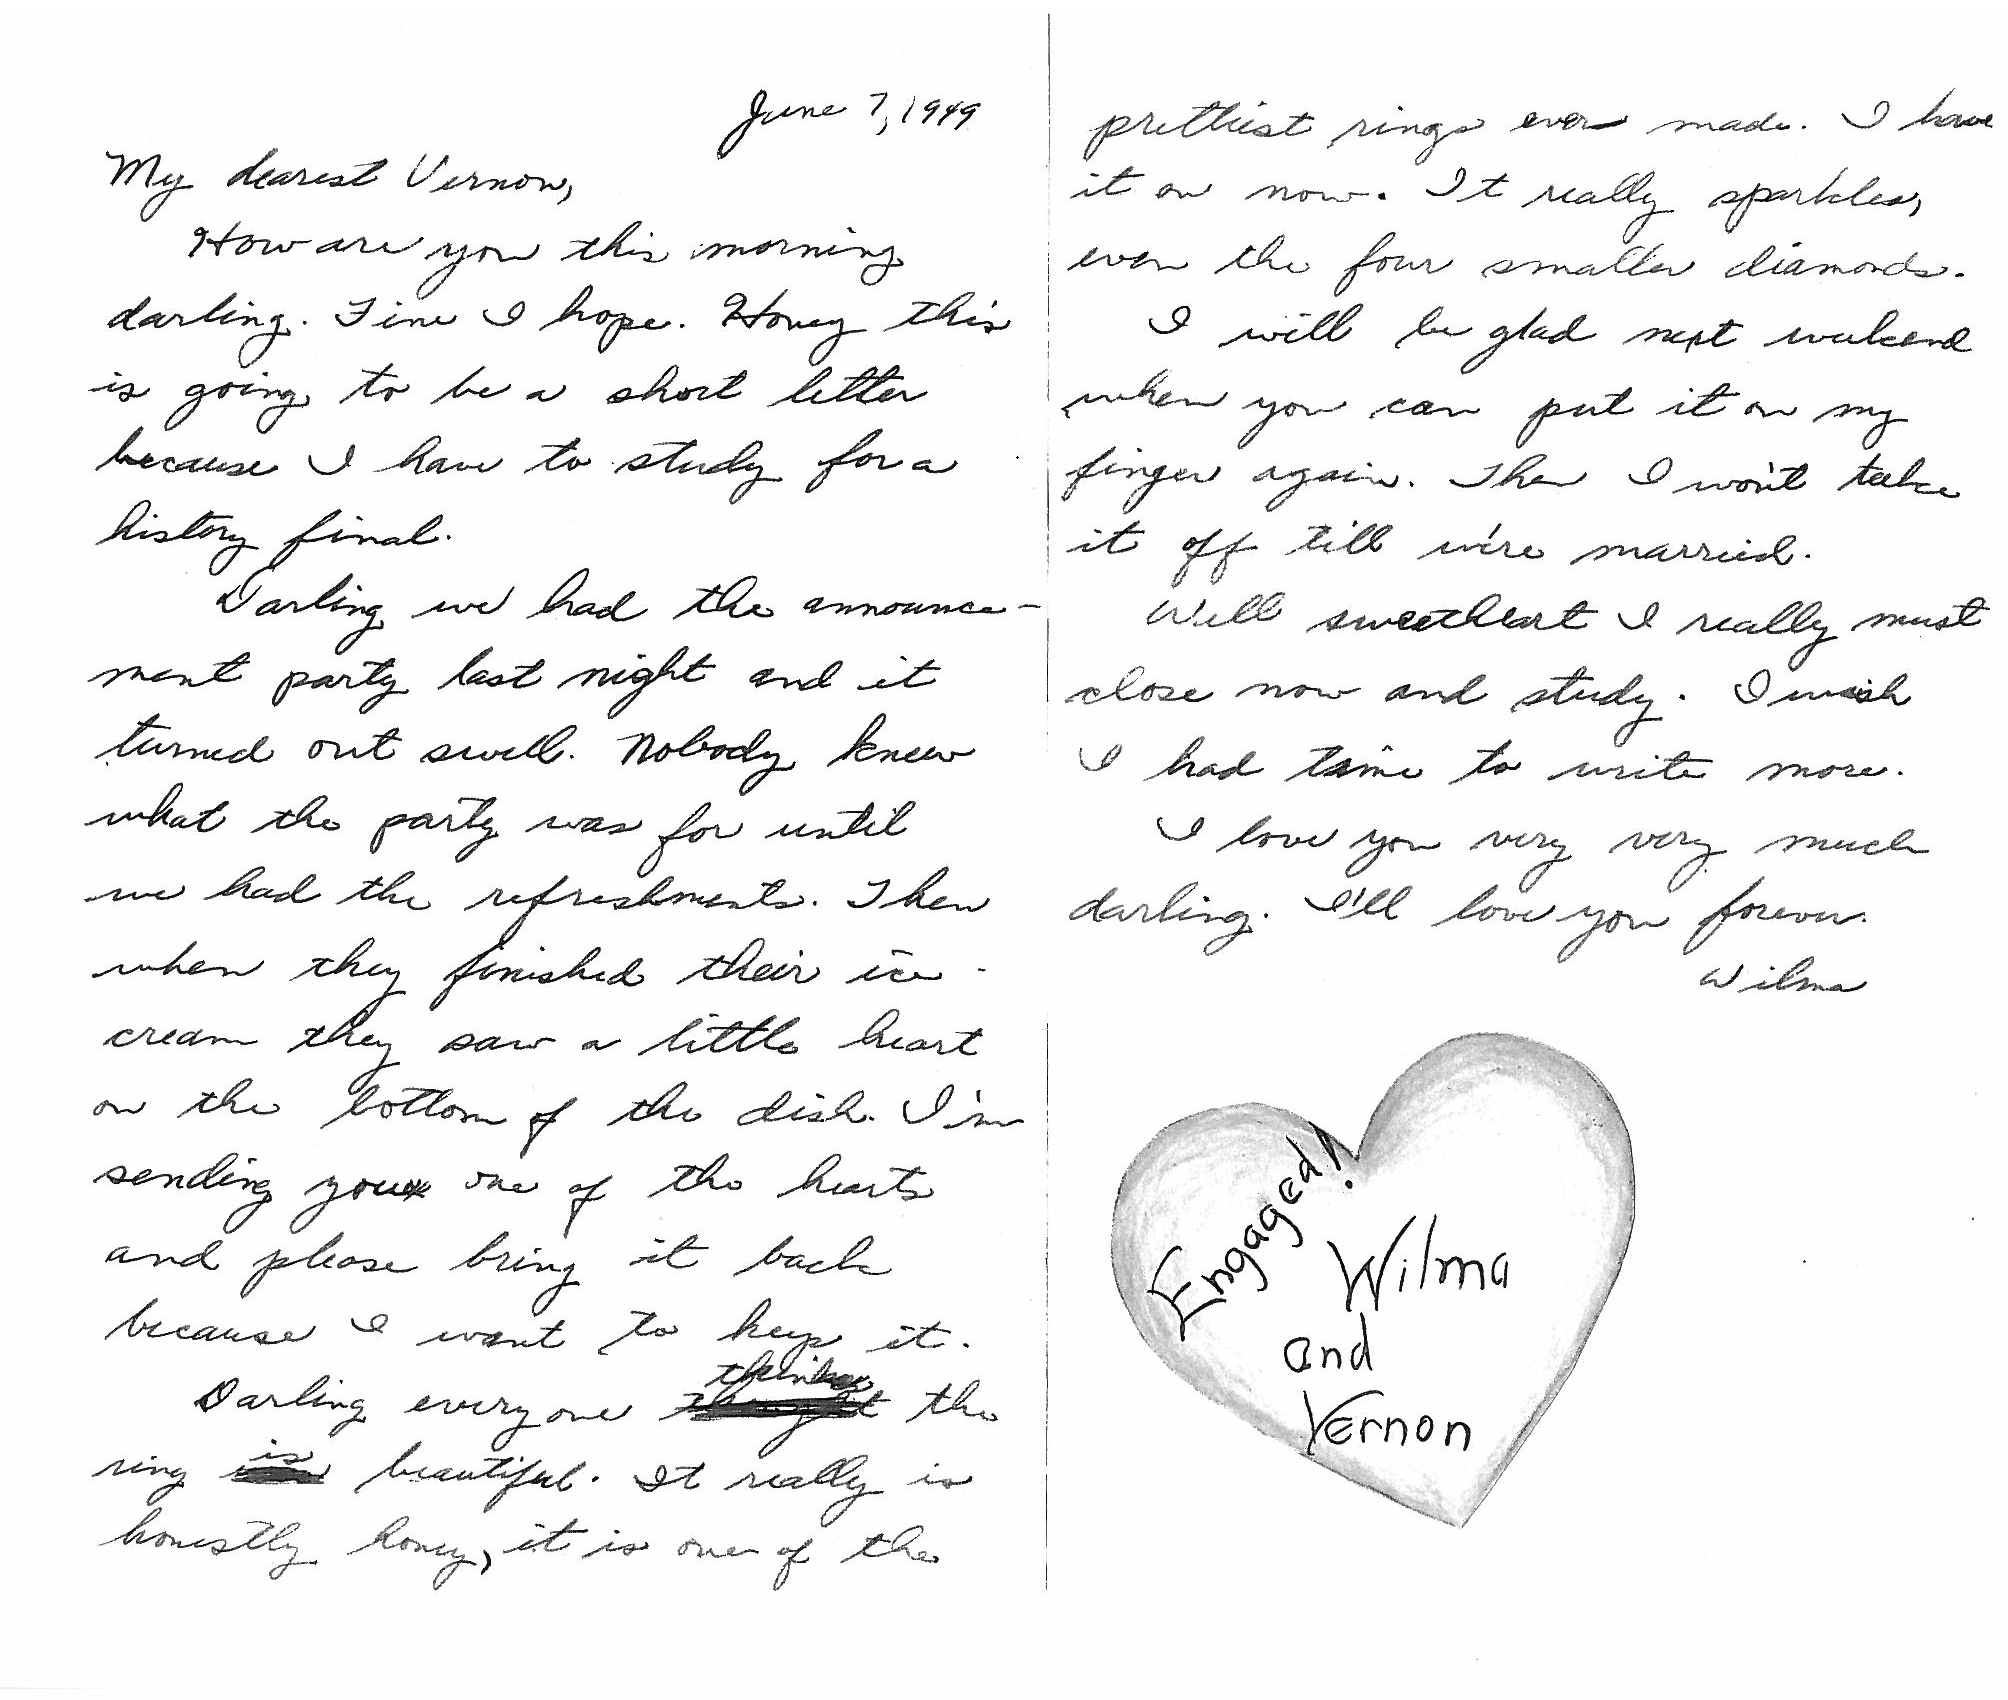 June 7, 1949
My dearest Vernon,
How are you this morning
darling. Fine I hope. Honey this
is going to be a short letter
because I have to study for a
history final.
Darling we had the announce-
ment party last night and it
turned out swell. Nobody knew
what the party was for until
we had the refreshments. Then
when they finished their ice-
cream they saw a little heart
on the bottom of the dish. I'm
sending you one of the hearts
and please bring it back
because I want to keep it.
Darling everyone thinks the
ring is beautiful. It really is
honestly honey, it is one of the
prettiest rings ever made. I have
it on now. It really sparkles,
even the four smaller diamonds.
I will be glad next weekend
when you can put it on my
finger again. Then I won't take
it off till we're married.
Well sweetheart I really must
close now and study. I wish
I had time to write more.
I love you very very much
darling. I'll love you forever.
Wilma
Engaged!
Wilma
and
Vernon